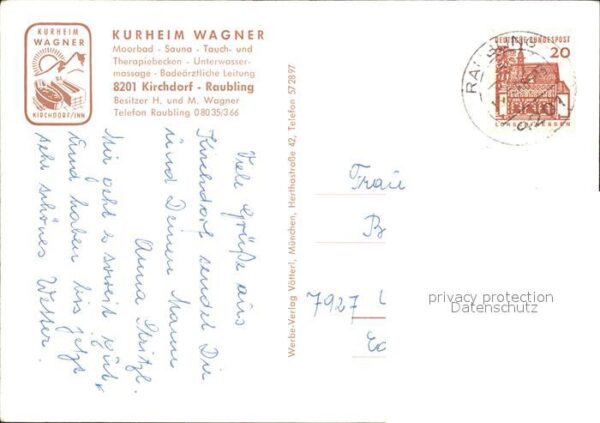 KURHEIM
WAGNER
KIRCHDORF/INN
KURHEIM WAGNER
Moorbad - Sauna - Tauch- und
Therapiebecken - Unterwasser-
massage - Badeärztliche Leitung
8201 Kirchdorf - Raubling
Besitzer H. und M. Wagner
Telefon Raubling 08035/366
Viele Grüße aus
Kirchdorf sendet Dir
und Deinem Mann
Anna
Mir geht es soweit gut,
und haben bis jetzt
sehr schönes Wetter.
Werbe-Verlag Vötterl, München, Herthastraße 42, Telefon 572897
DEUTSCHE BUNDESPOST
20
LORSCH/HESSEN
Frau
B
7927
privacy protection
Datenschutz